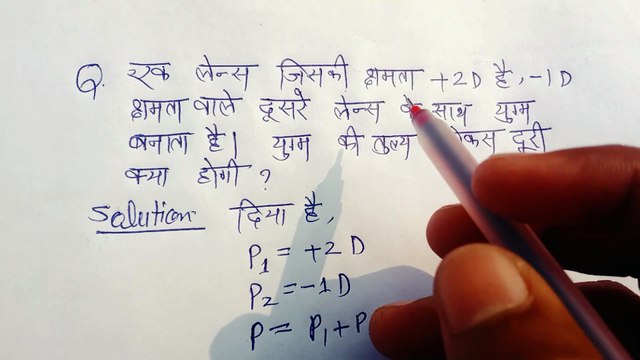 Q. एक लेन्स जिसकी क्षमता +2D है, -1D
क्षमता वाले दूसरे लेन्स के साथ युग्म
बनाता है। युग्म की तुल्य फोकस दूरी
क्या होगी ?
Solution दिया है,
P₁ = +2 D
P₂ = -1 D
P = P₁ + P